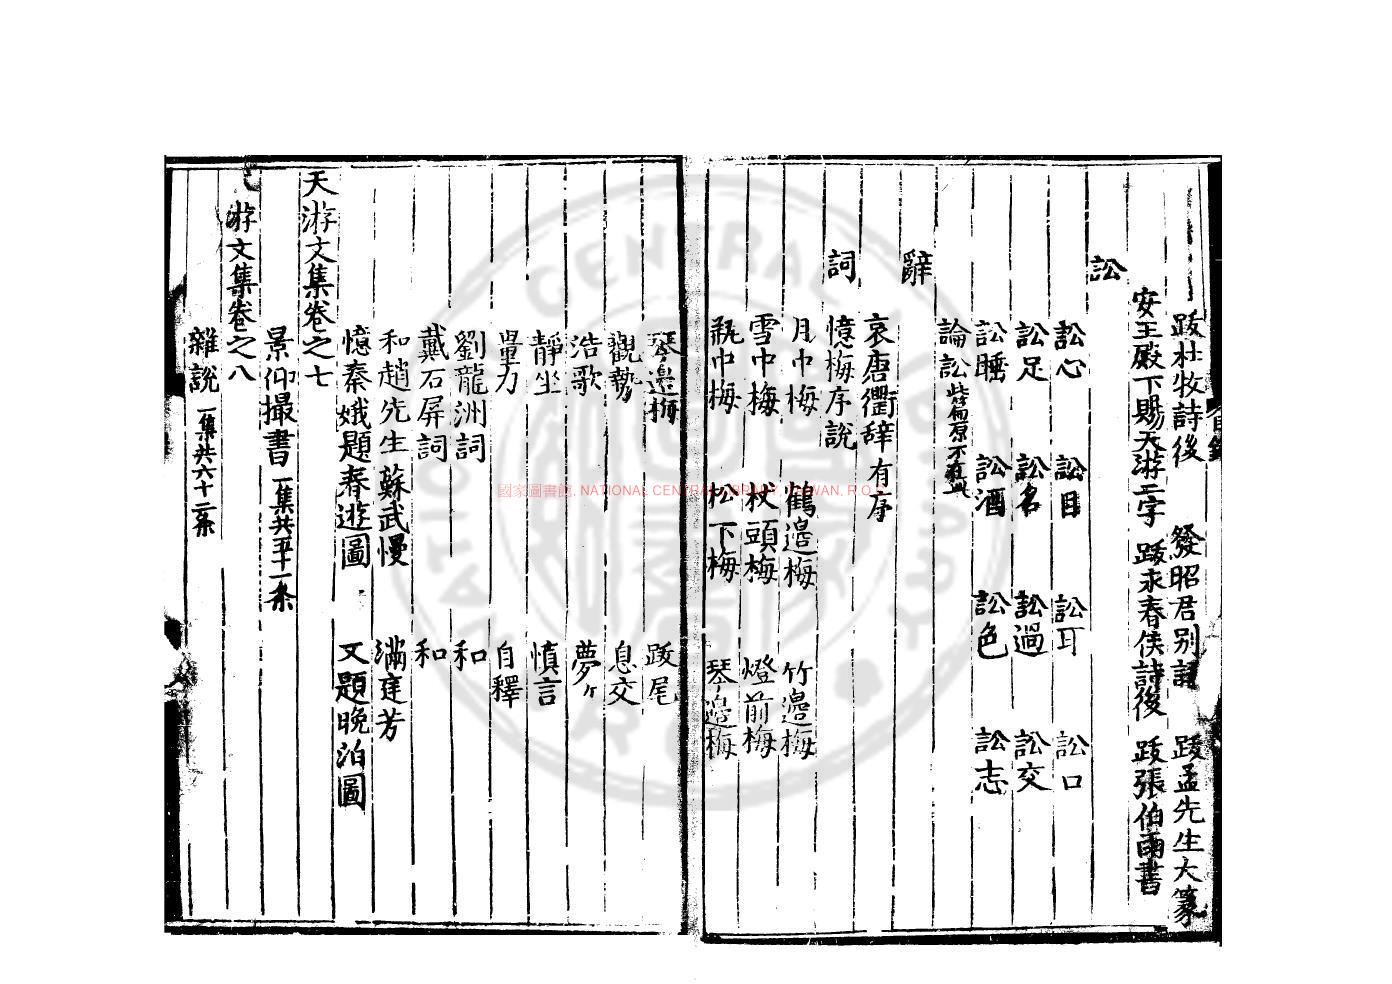 跋杜牧詩後 發昭君别詩 跋孟先生大篆
安王殿下賜天游二字 跋永春侯詩後 跋張伯雨書
訟
訟心 訟目 訟耳 訟口
訟足 訟名 訟過 訟交
訟睡 訟酒 訟色 訟志
論訟
辭
哀唐衢辞有序
詞
憶梅序說
月中梅 鶴邉梅 竹邉梅
雪中梅 杖頭梅 燈前梅
瓶中梅 松下梅 琴邉梅
琴邉梅 跋尾
觀勢 息交
浩歌 夢
靜坐 慎言
量力 自釋
劉龍洲詞 和
戴石屏詞 和
和趙先生蘇武慢 滿庭芳
憶秦娥題春遊圖 又題晚泊圖
天游文集卷之七
景仰撮書 一集共五十一条
游文集卷之八
雜說 一集共六十二条
國家圖書館, NATIONAL CENTRAL LIBRARY, TAIWAN, R.O.C